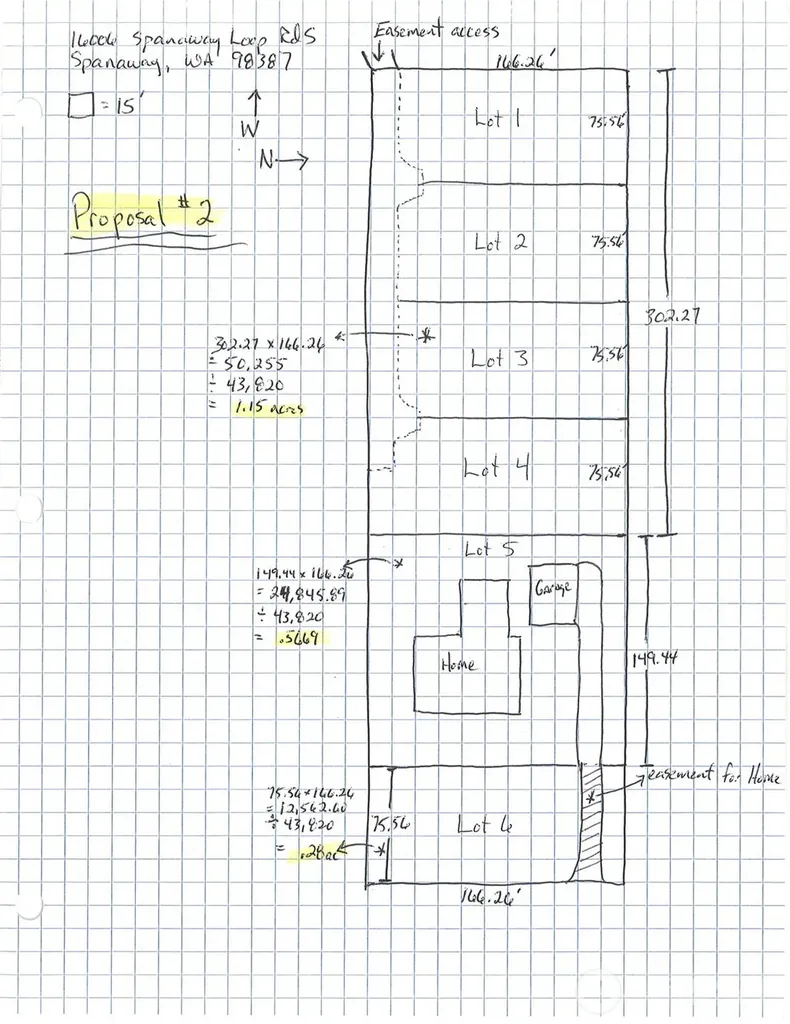 16006 Spanaway Loop Rd S
Spanaway, WA 98387
= 15'
W
N
Proposal #2
Easement access
166.26'
Lot 1
75.56'
Lot 2
75.56'
302.27
302.27 x 166.26
= 50,255
÷ 43,820
= 1.15 acres
*
Lot 3
75.56'
Lot 4
75.56'
Lot 5
149.44 x 166.26
= 24,845.89
÷ 43,820
= .5669
*
Garage
Home
149.44
easement for Home
*
75.56 x 166.26
= 12,562.60
÷ 43,820
= .28ac
*
75.56
Lot 6
166.26'